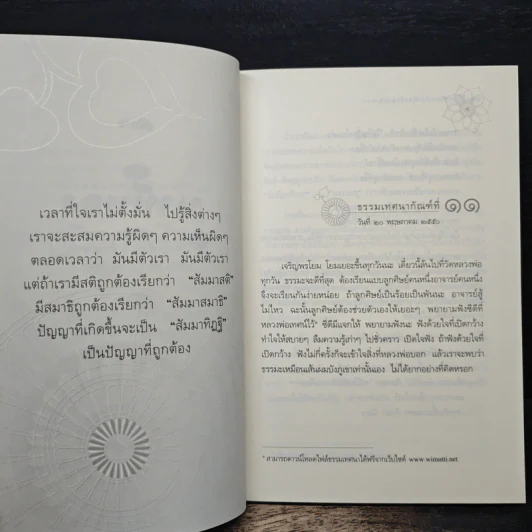 เวลาที่ใจเราไม่ตั้งมั่น ไปรู้สิ่งต่างๆ
เราจะสะสมความรู้ผิดๆ ความเห็นผิดๆ
ตลอดเวลาว่า มันมีตัวเรา มันมีตัวเรา
แต่ถ้าเรามีสติถูกต้องเรียกว่า “สัมมาสติ”
มีสมาธิถูกต้องเรียกว่า “สัมมาสมาธิ”
ปัญญาที่เกิดขึ้นจะเป็น “สัมมาทิฏฐิ”
เป็นปัญญาที่ถูกต้อง
ธรรมเทศนากัณฑ์ที่ ๑๑
วันที่ ๒๐ พฤษภาคม ๒๕๕๐
เจริญพรโยม โยมเยอะขึ้นทุกวันนะ เดี๋ยวนี้ล้นไปที่วัดหลวงพ่อ
ทุกวัน ธรรมะจะดีที่สุด ต้องเรียนแบบลูกศิษย์คนหนึ่งอาจารย์คนหนึ่ง
ถึงจะเรียนกันง่ายหน่อย ถ้าลูกศิษย์เป็นร้อยเป็นพันนะ อาจารย์สู้
ไม่ไหว ฉะนั้นลูกศิษย์ต้องช่วยตัวเองให้เยอะๆ พยายามฟังซีดีที่
หลวงพ่อเทศน์ไว้* ซีดีมีแจกให้ พยายามฟังนะ ฟังด้วยใจที่เปิดกว้าง
ทำใจให้สบายๆ ลืมความรู้เก่าๆ ไปชั่วคราว เปิดใจฟัง ถ้าฟังด้วยใจที่
เปิดกว้าง ฟังไม่กี่ครั้งก็จะเข้าใจสิ่งที่หลวงพ่อบอก แล้วเราจะพบว่า
ธรรมะเหมือนเส้นผมบังภูเขาเท่านั้นเอง ไม่ได้ยากอย่างที่คิดหรอก
* สามารถดาวน์โหลดไฟล์ธรรมเทศนาได้ฟรีจากเว็บไซต์ www.wimutti.net